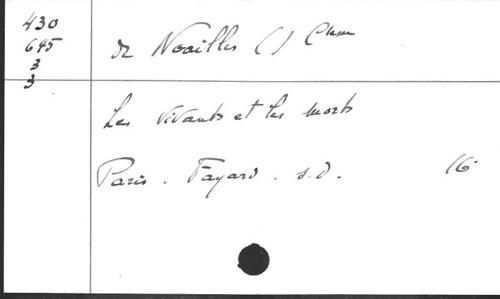 430
645
3
3
de Noailles () Ctesse
Les vivants et les morts
Paris. Fayard. s.d. 16°